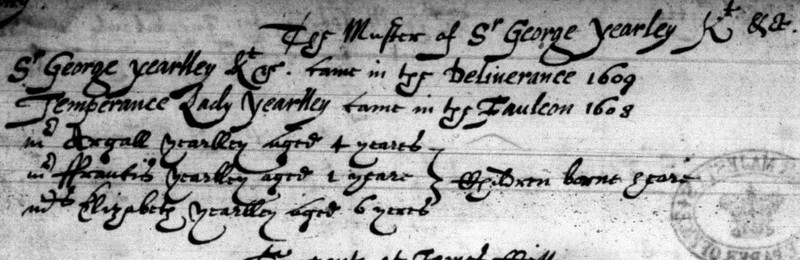 The Muster of Sr George Yearley Kt &c.
Sr George Yearlley Kt &c. came in the Deliverance 1609
Temperance Lady Yearlley came in the Faulcon 1608
mr Argall Yearlley aged 4 yeares
mr ffrancis Yearlley aged 1 yeare } Children borne heare
mrs Elizabeth Yearlley aged 6 yeres